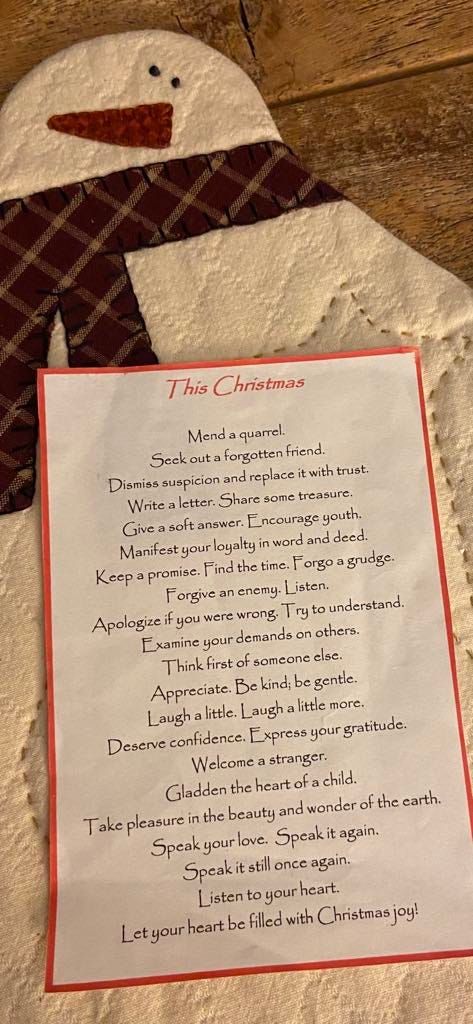 This Christmas
Mend a quarrel.
Seek out a forgotten friend.
Dismiss suspicion and replace it with trust.
Write a letter. Share some treasure.
Give a soft answer. Encourage youth.
Manifest your loyalty in word and deed.
Keep a promise. Find the time. Forgo a grudge.
Forgive an enemy. Listen.
Apologize if you were wrong. Try to understand.
Examine your demands on others.
Think first of someone else.
Appreciate. Be kind; be gentle.
Laugh a little. Laugh a little more.
Deserve confidence. Express your gratitude.
Welcome a stranger.
Gladden the heart of a child.
Take pleasure in the beauty and wonder of the earth.
Speak your love. Speak it again.
Speak it still once again.
Listen to your heart.
Let your heart be filled with Christmas joy!